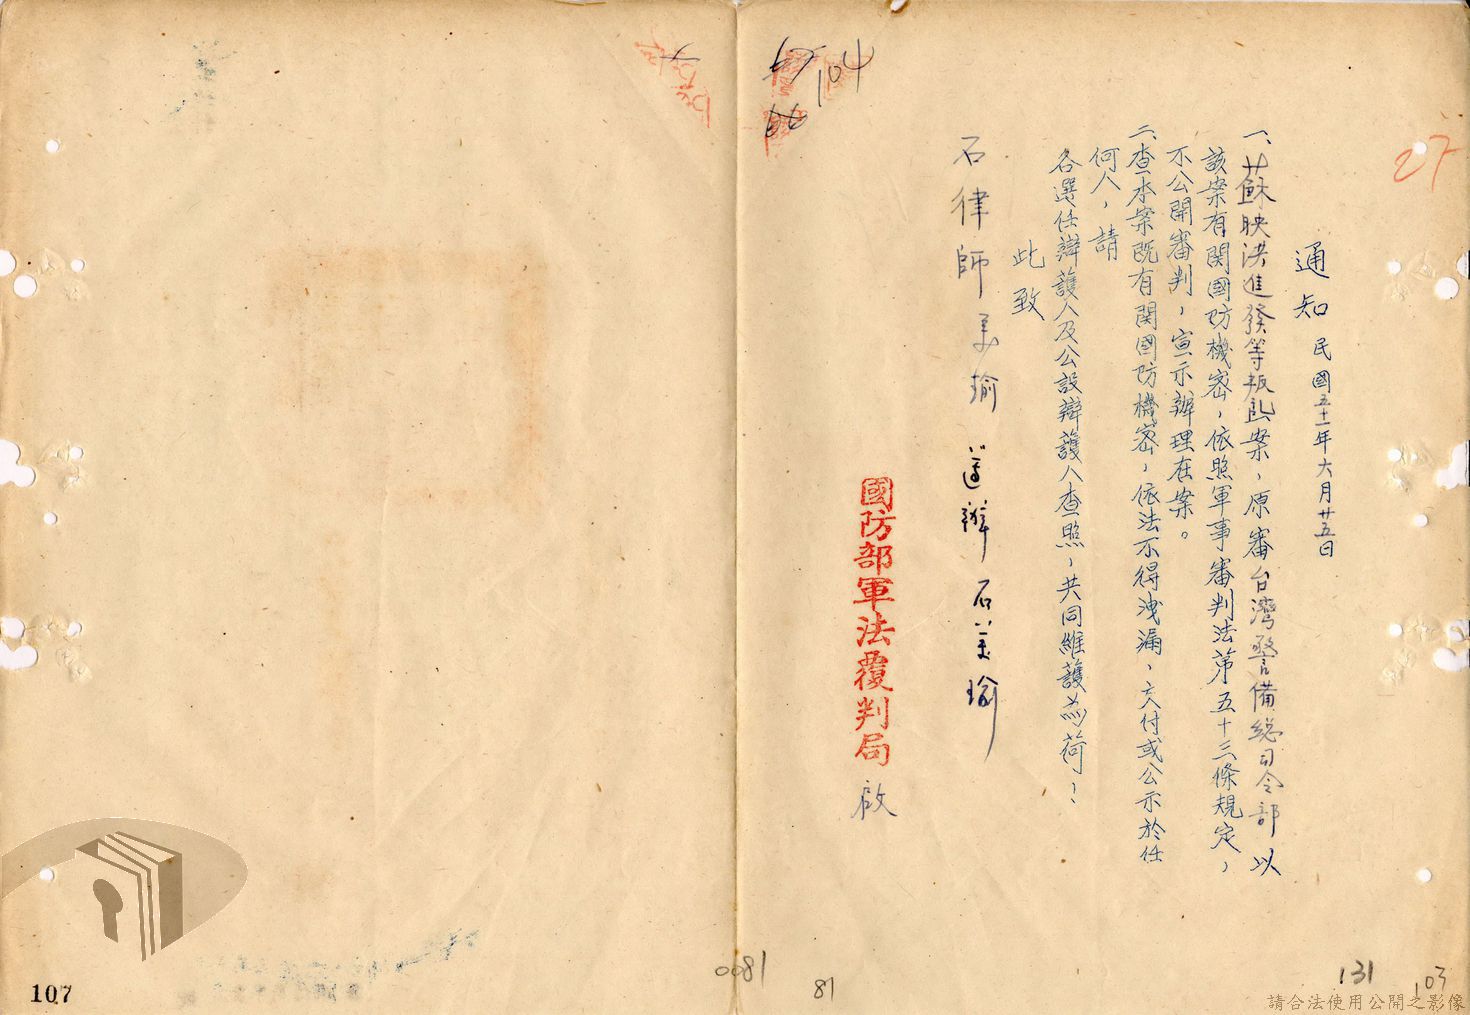 27
通知 民國五十一年六月廿五日
一、蘇映洪進發等叛亂案，原審台灣警備總司令部以
該案有関國防機密，依照軍事審判法第五十三條規定，
不公開審判，宣示辦理在案。
二、查本案既有関國防機密，依法不得洩漏、交付或公示於任
何人，請
各選任辯護人及公設辯護人查照，共同維護為荷！
此致
石律師美瑜 遵辦 石美瑜
國防部軍法覆判局 啟
104
66
0081
81
131
103
107
請合法使用公開之影像